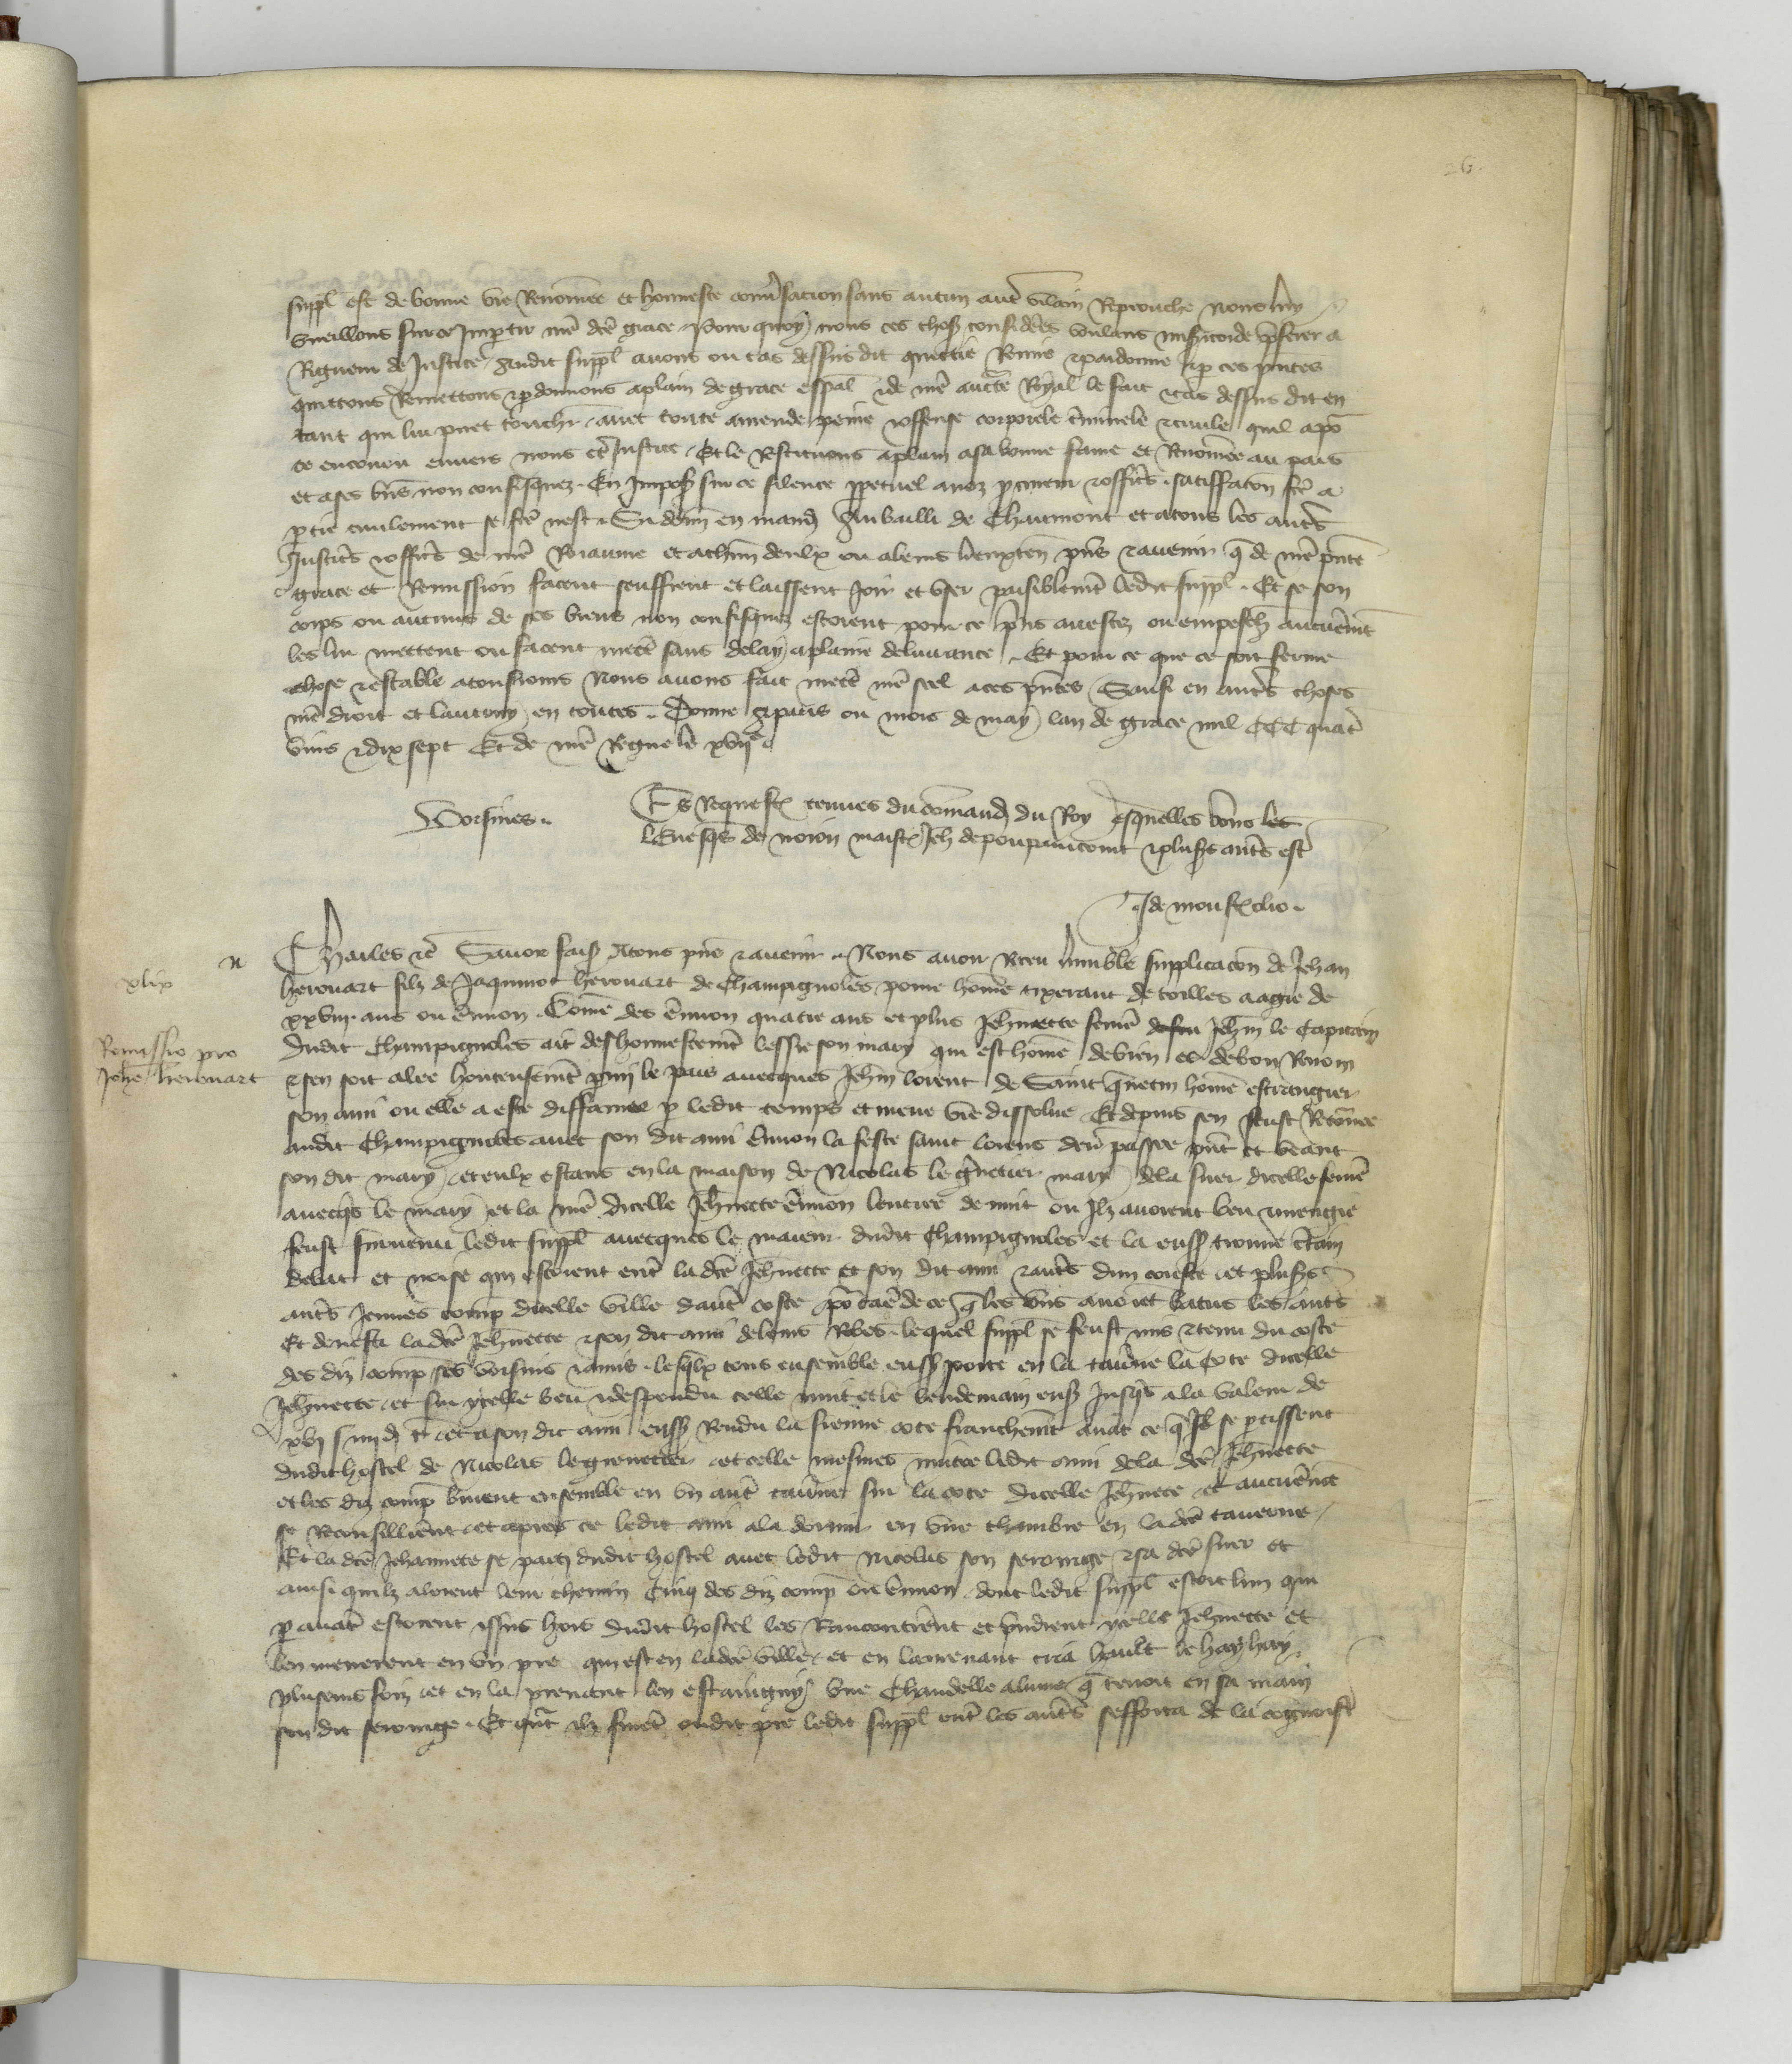 26
suppl est de bonne vie Renommee et honneste conversacion sans aucun autre vilain Reprouche nous luy
vueillons sur ce Impartir nostre dicte grace Pour quoy nous ces choses considerees voulans misericorde preferer a
Rigueur de Justice Audit suppl avons ou cas dessus dit quittie Remis et pardonne et par ces presentes
quittons Remettons et pardonnons a plain de grace especial et de nostre auctorite Royal le fait et cas dessus dit en
tant qui lui puet touchier avec toute amende peine et offense corporele criminele et civile quil a pour
ce encouru envers nous et Justice Et le Restituons a plain a sa bonne fame et Renommee au pais
et a ses biens non confisquez En Imposant sur ce silence perpetuel a noz procureurs et officiers satisfacion faicte a
partie civilement se faicte nest Si donnons en mandement Au bailli de Chaumont et a tous les autres
Justiciers et officiers de nostre Royaume et a chascun deulx ou a leurs lieuxtenans presens et avenir que de nostre presente
grace et Remission facent seuffrent et laissent Joir et user paisiblement ledit suppl Et se son
corps ou aucuns de ses biens non confisquez estoient pour ce prins arrestez ou empeschez aucunement
les lui mettent ou facent mettre sans delay a plaine delivrance Et pour ce que ce soit ferme
chose et estable a tousiours Nous avons fait mettre nostre seel a ces presentes Sauf en autres choses
nostre droit et lautruy en toutes Donne a paris ou mois de may lan de grace mil CCC quatre
vins et dix sept Et de nostre Regne le xvije
Es Requestes tenues du commandement du Roy esquelles vous les
Evesques de noion maistre Jeh de poupaincourt et plusieurs autres est
Voisines
J de monsteclio
n
xlix
Remissio pro
Johe herouart
Charles etc Savoir faisons A tous presens et avenir Nous avoir Receu humble supplicacion de Jehan
herouart filz de Jaquinot herouart de Champignoles povre homme tixerant de toilles aagie de
xxviij ans ou environ Comme des environ quatre ans et plus Jehannette femme Jehan le Capitain
dudit Champignoles ait deshonnestement lessie son mary qui est homme de bien et de bon Renom
et sen soit alee honteusement parmi le pais avecques Jehan lorent de Saint quentin homme estrangier
son ami ou elle a este diffamee par ledit temps et mene vie dissolue Et depuis sen feust Retornee
audit Champignoles avec son dit ami environ la feste saint lorens derr passee present et veant
son dit mary et eulx estans en la maison de Nicolas le grenetier mary de la suer dicelle femme
avecques le mary et la mere dicelle Jehannette environ lentree de nuit ou Ilz avoient beu et mengie
feust survenu ledit suppl avecques le maieur dudit Champignoles et la eussent trouve certain
debat et noise qui estoient entre la dicte Jehannette et son dit ami et autres dun coste et plusieurs
autres Jeunes comp dicelle ville dautre coste pour cause de ce que les uns avoient batus les autres
Et devestu la dicte Jehannette et son dit ami de leurs Robes lequel suppl se feust mis et tenu du coste
des diz comp ses voisins et amis lesquelx tous ensemble eussent porte en la taverne la cote dicelle
Jehannette et sur ycelle beu et despendu celle nuit et le lendemain ensuivant Jusques a la valeur de
xvj s iiij d t et a son dit ami eussent Rendu la sienne cote franchement avant ce que Ilz se partissent
dudit hostel de Nicolas le grenetier et celle mesmes nuitee ledit ami de la dicte Jehannette
et les diz comp burent ensemble en un autre taverne sur la cote dicelle Jehannette et aucunement
se Reconsillierent et apres ce ledit ami ala dormir en une chambre en la dicte taverne
Et la dicte Jehannete se parti dudit hostel avec ledit Nicolas son serourge et sa dicte suer et
ainsi quilz aloient leur chemin Cinq des diz comp ou environ dont ledit suppl estoit lun qui
par avant estoient yssus hors dudit hostel les Rancontrerent et prindrent ycelle Jehannette et
len menerent en un pre qui est en la dicte ville et en lamenant cria hault le hay hay
plusieurs foiz et en la prenant len estaingny une Chandelle alumee que tenoit en sa main
son dit serourge Et quant ilz furent oudit pre ledit suppl entre les autres sefforca de la cognoistre